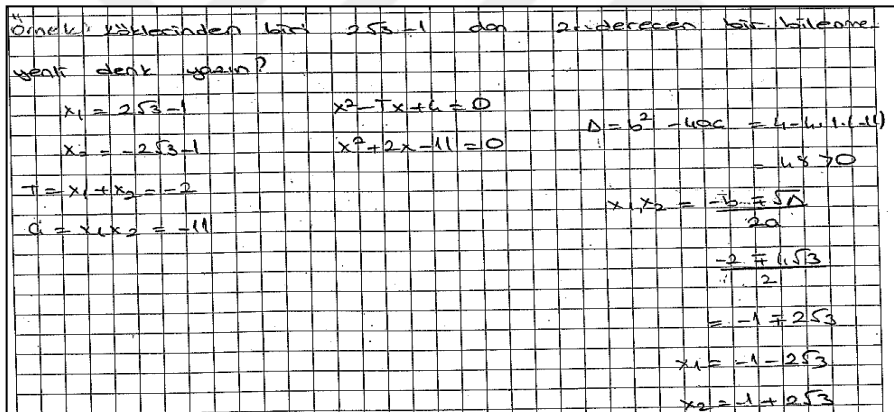 Örnek: Köklerinden biri 2√3-1 den 2. dereceden bir bilinme-
yenli denk yazın?
x₁ = 2√3-1
x₂ = -2√3-1
T = x₁+x₂ = -2
Ç = x₁x₂ = -11
x²-Tx+Ç = 0
x²+2x-11 = 0
Δ = b² - 4ac = 4-4.1.(-11)
= 48 > 0
x₁,x₂ = -b ∓ √Δ / 2a
-2 ∓ 4√3 / 2
= -1 ∓ 2√3
x₁ = -1-2√3
x₂ = -1+2√3